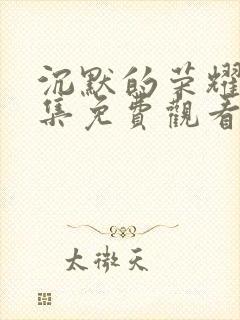 沉默的荣耀
集免費觀看
太微天